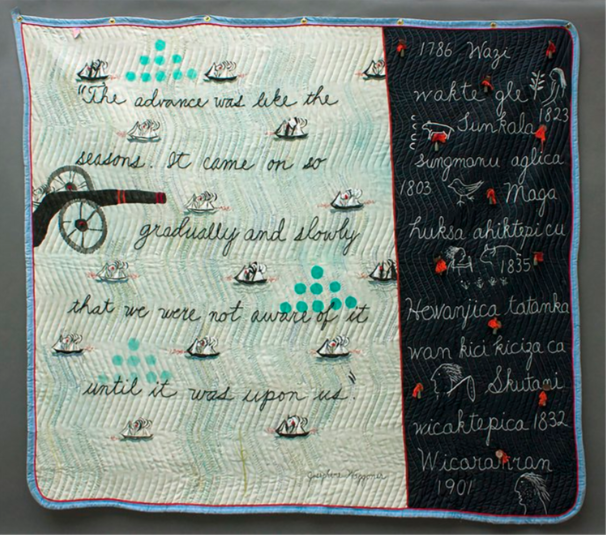 "The advance was like the
seasons. It came on so
gradually and slowly
that we were not aware of it
until it was upon us."
Josephine Waggoner
1786 Wazi
wakte gle
1823
Sunkala
sungmanu aglica
1803
Maga
huksa ahiktepi cu
1835
Hewanjica tatanka
wan kici kiciza ca
Skutani
wicaktepica 1832
Wicarahran
1901